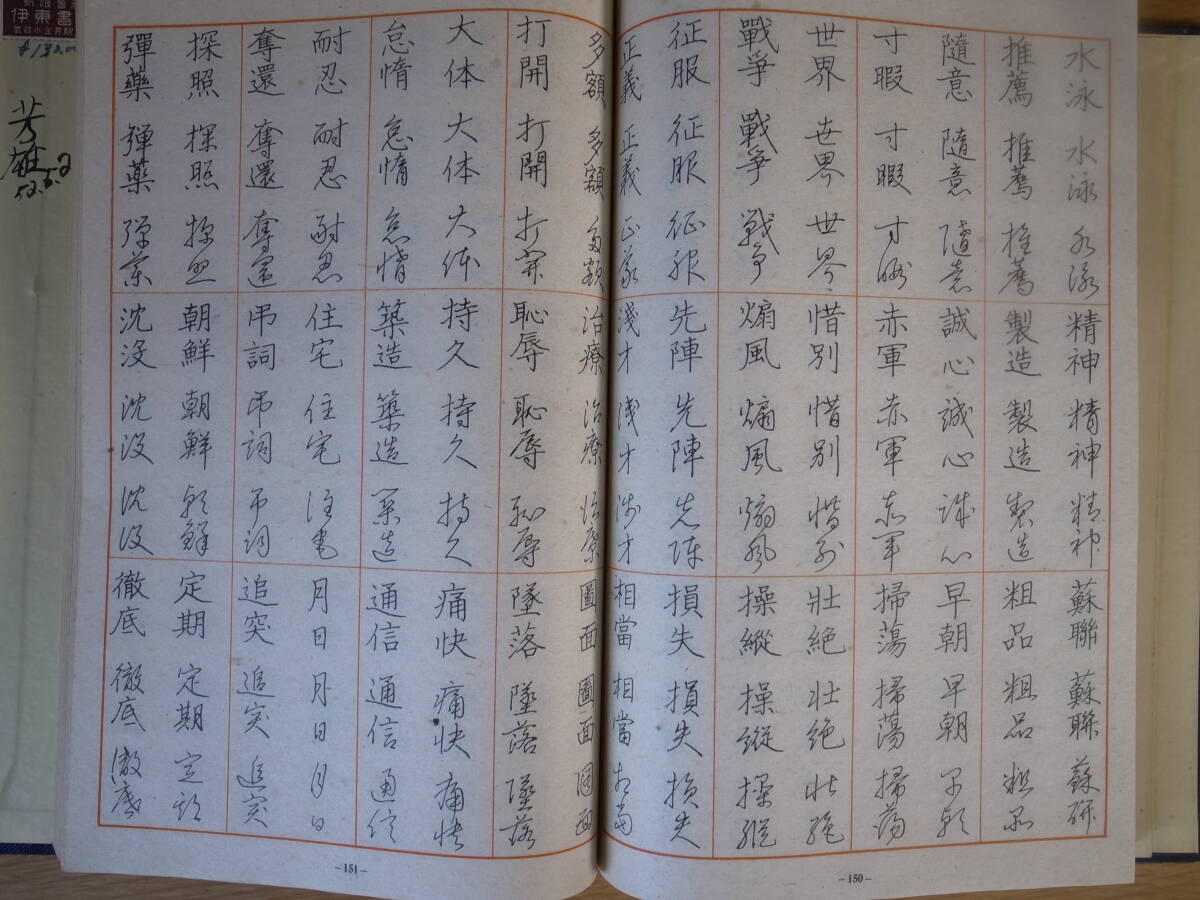 水泳 水泳 水泳 精神 精神 精神 蘇聯 蘇聯 蘇聯
推薦 推薦 推薦 製造 製造 製造 粗品 粗品 粗品
隨意 隨意 隨意 誠心 誠心 誠心 早朝 早朝 早朝
寸暇 寸暇 寸暇 赤軍 赤軍 赤軍 掃蕩 掃蕩 掃蕩
世界 世界 世界 惜別 惜別 惜別 壯絶 壯絶 壯絶
戰爭 戰爭 戦争 煽風 煽風 煽風 操縱 操縱 操縱
征服 征服 征服 先陣 先陣 先陣 損失 損失 損失
正義 正義 正義 淺才 浅才 浅才 相當 相當 相當
-150-
多額 多額 多額 治療 治療 治療 圖面 圖面 圖面
打開 打開 打開 恥辱 恥辱 恥辱 墜落 墜落 墜落
大体 大体 大体 持久 持久 持久 痛快 痛快 痛快
怠惰 怠惰 怠惰 築造 築造 築造 通信 通信 通信
耐忍 耐忍 耐忍 住宅 住宅 住宅 月日 月日 月日
奪還 奪還 奪還 弔詞 弔詞 弔詞 追突 追突 追突
探照 探照 探照 朝鮮 朝鮮 朝鮮 定期 定期 定期
彈藥 彈藥 彈藥 沈没 沈没 沈没 徹底 徹底 徹底
-151-
伊東書
芳雄